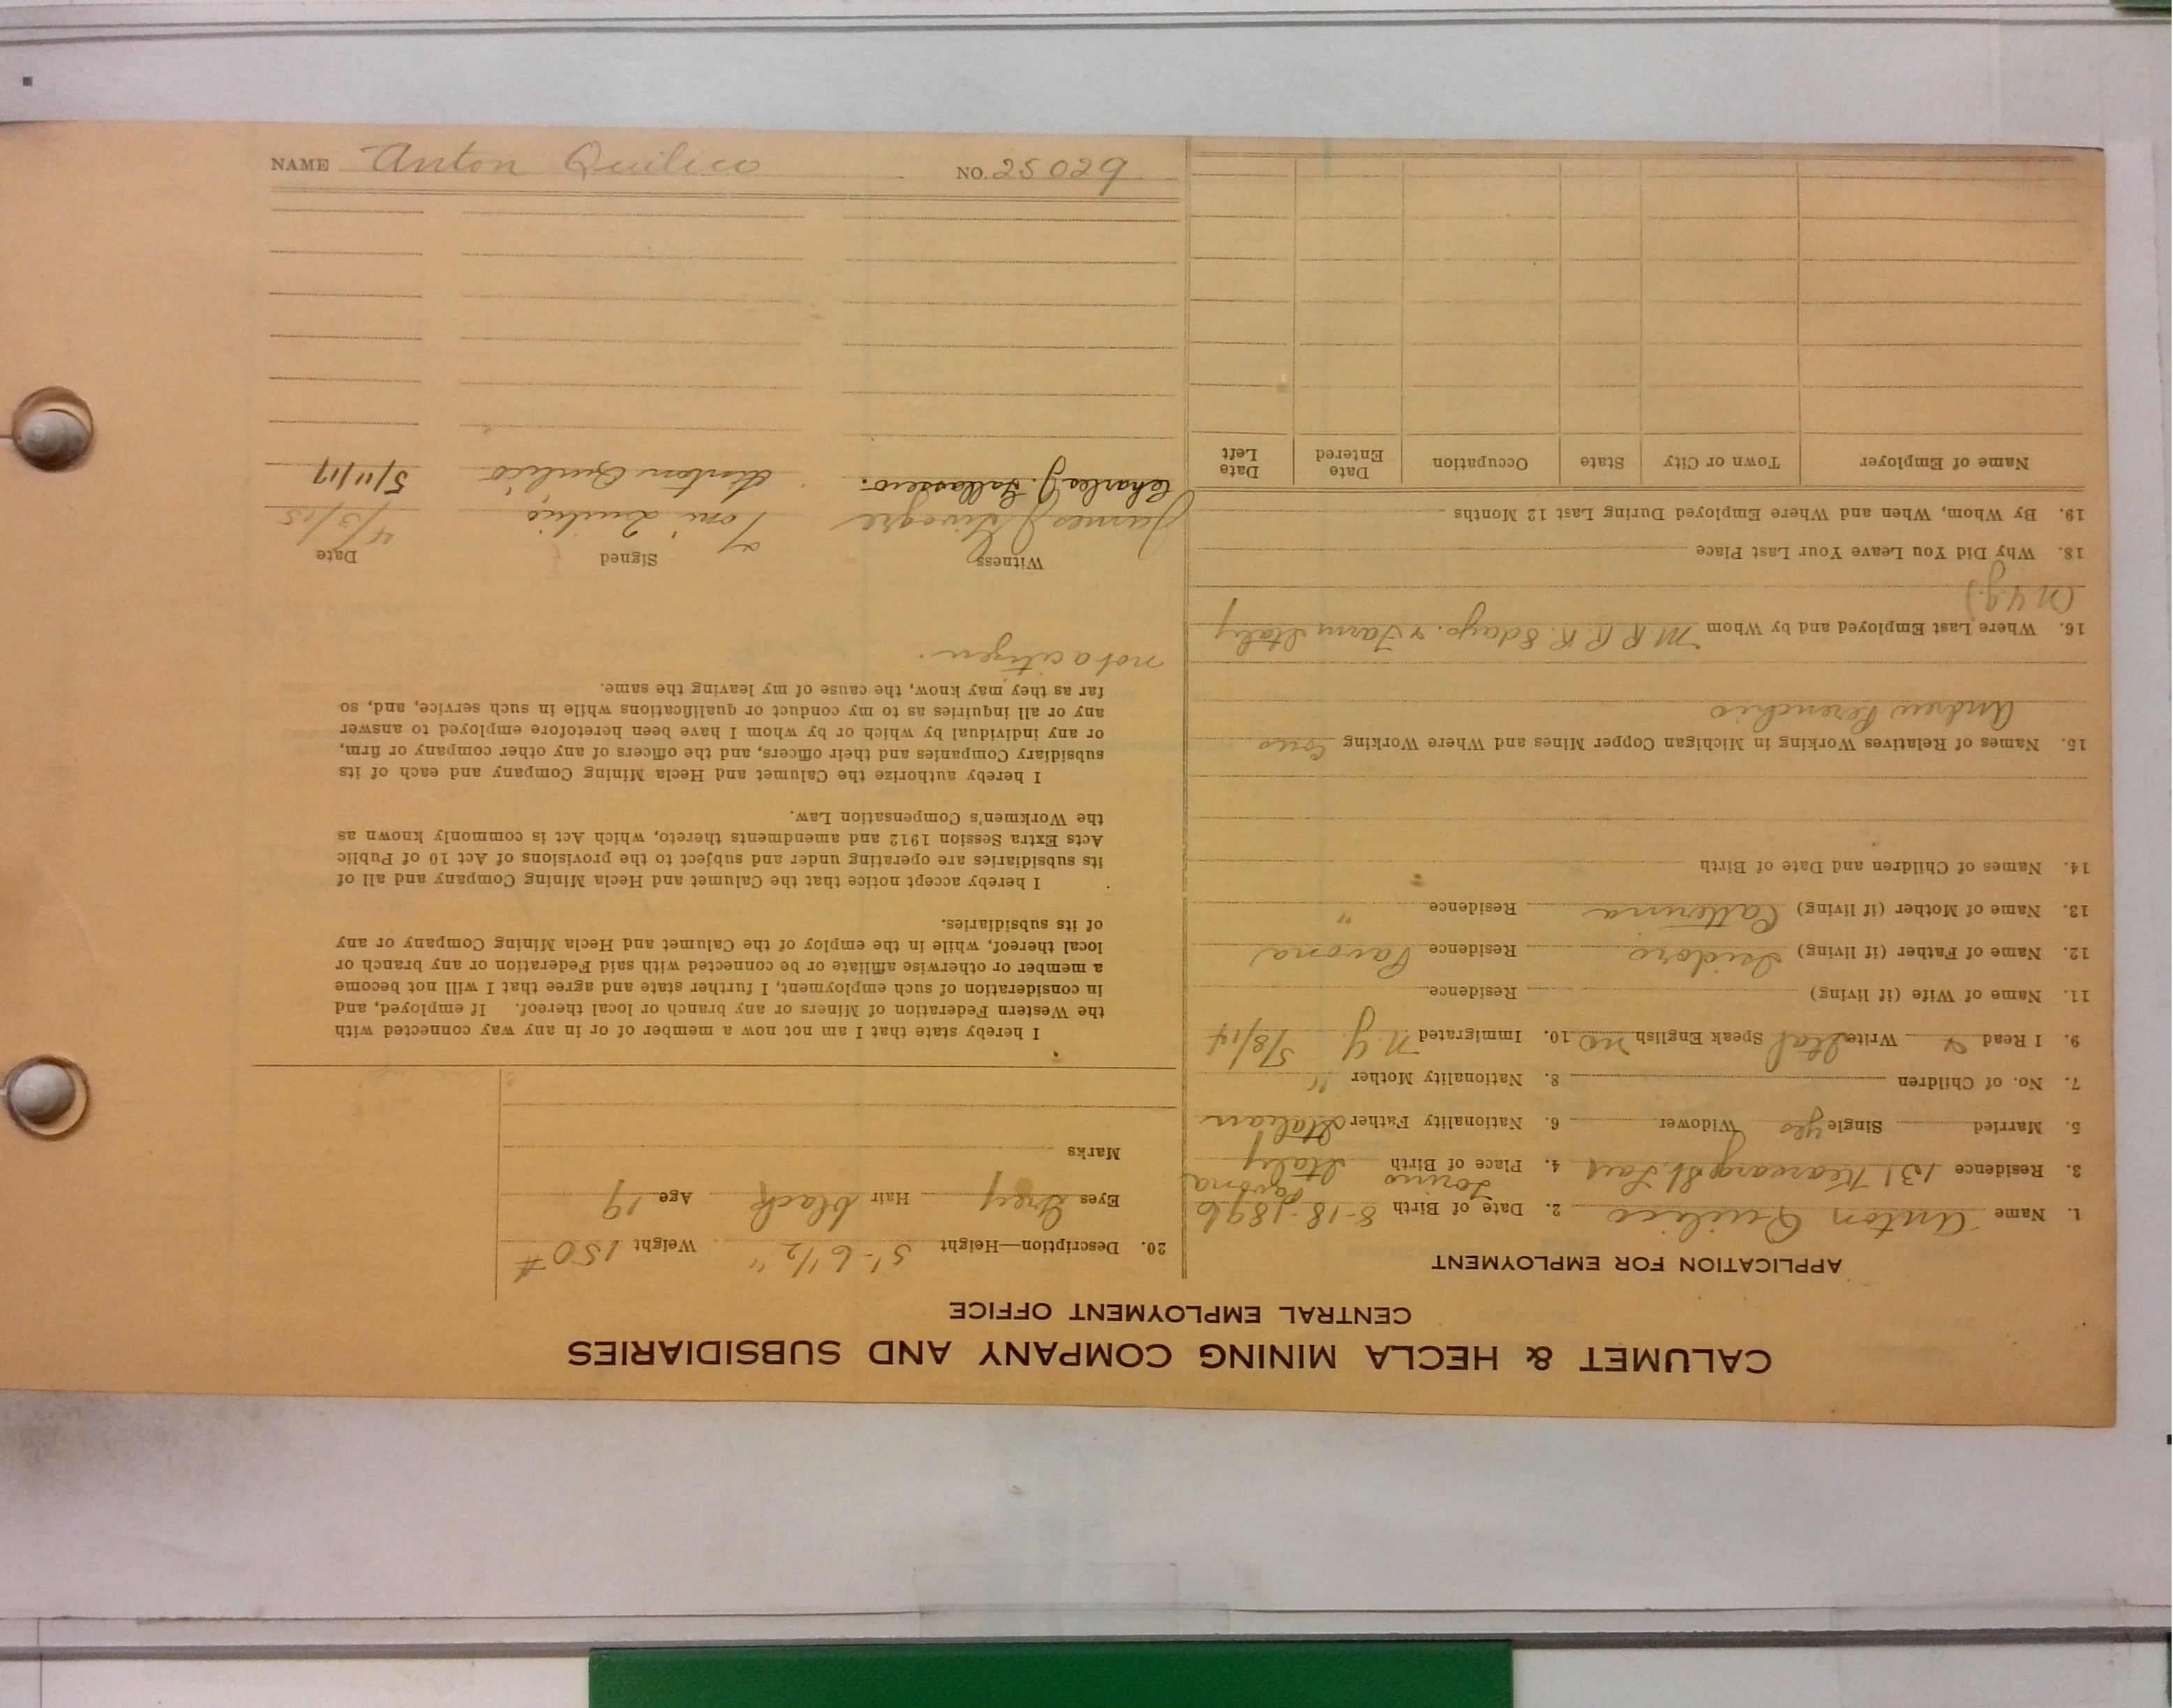 CALUMET & HECLA MINING COMPANY AND SUBSIDIARIES
CENTRAL EMPLOYMENT OFFICE
APPLICATION FOR EMPLOYMENT
1. Name Anton Quilico 2. Date of Birth 8-18-1896
3. Residence 131 Kearsarge St. Laur 4. Place of Birth Torino Pavona Italy
5. Married Single yes Widower 6. Nationality Father Italian
7. No. of Children 8. Nationality Mother "
9. I Read & Write Ital Speak English no 10. Immigrated N.Y. 5/8/14
11. Name of Wife (if living) Residence
12. Name of Father (if living) Isidoro Residence Pavona
13. Name of Mother (if living) Catterina Residence "
14. Names of Children and Date of Birth
15. Names of Relatives Working in Michigan Copper Mines and Where Working Cous
Andrew Perenchio
16. Where Last Employed and by Whom M R R R. 8 days. & Farm Italy
18. Why Did You Leave Your Last Place
19. By Whom, When and Where Employed During Last 12 Months
Name of Employer Town or City State Occupation Date Entered Date Left
20. Description—Height 5'-6 1/2" Weight 150 #
Eyes Grey Hair black Age 19
Marks
I hereby state that I am not now a member of or in any way connected with
the Western Federation of Miners or any branch or local thereof. If employed, and
in consideration of such employment, I further state and agree that I will not become
a member or otherwise affiliate or be connected with said Federation or any branch or
local thereof, while in the employ of the Calumet and Hecla Mining Company or any
of its subsidiaries.
I hereby accept notice that the Calumet and Hecla Mining Company and all of
its subsidiaries are operating under and subject to the provisions of Act 10 of Public
Acts Extra Session 1912 and amendments thereto, which Act is commonly known as
the Workmen's Compensation Law.
I hereby authorize the Calumet and Hecla Mining Company and each of its
subsidiary Companies and their officers, and the officers of any other company or firm,
or any individual by which or by whom I have been heretofore employed to answer
any or all inquiries as to my conduct or qualifications while in such service, and, so
far as they may know, the cause of my leaving the same.
not a citizen.
Witness Signed Date
James Toni Quilico 4/5/15
Charles J. Gallasseio. Anton Quilico 5/11/17
NAME Anton Quilico NO. 25029